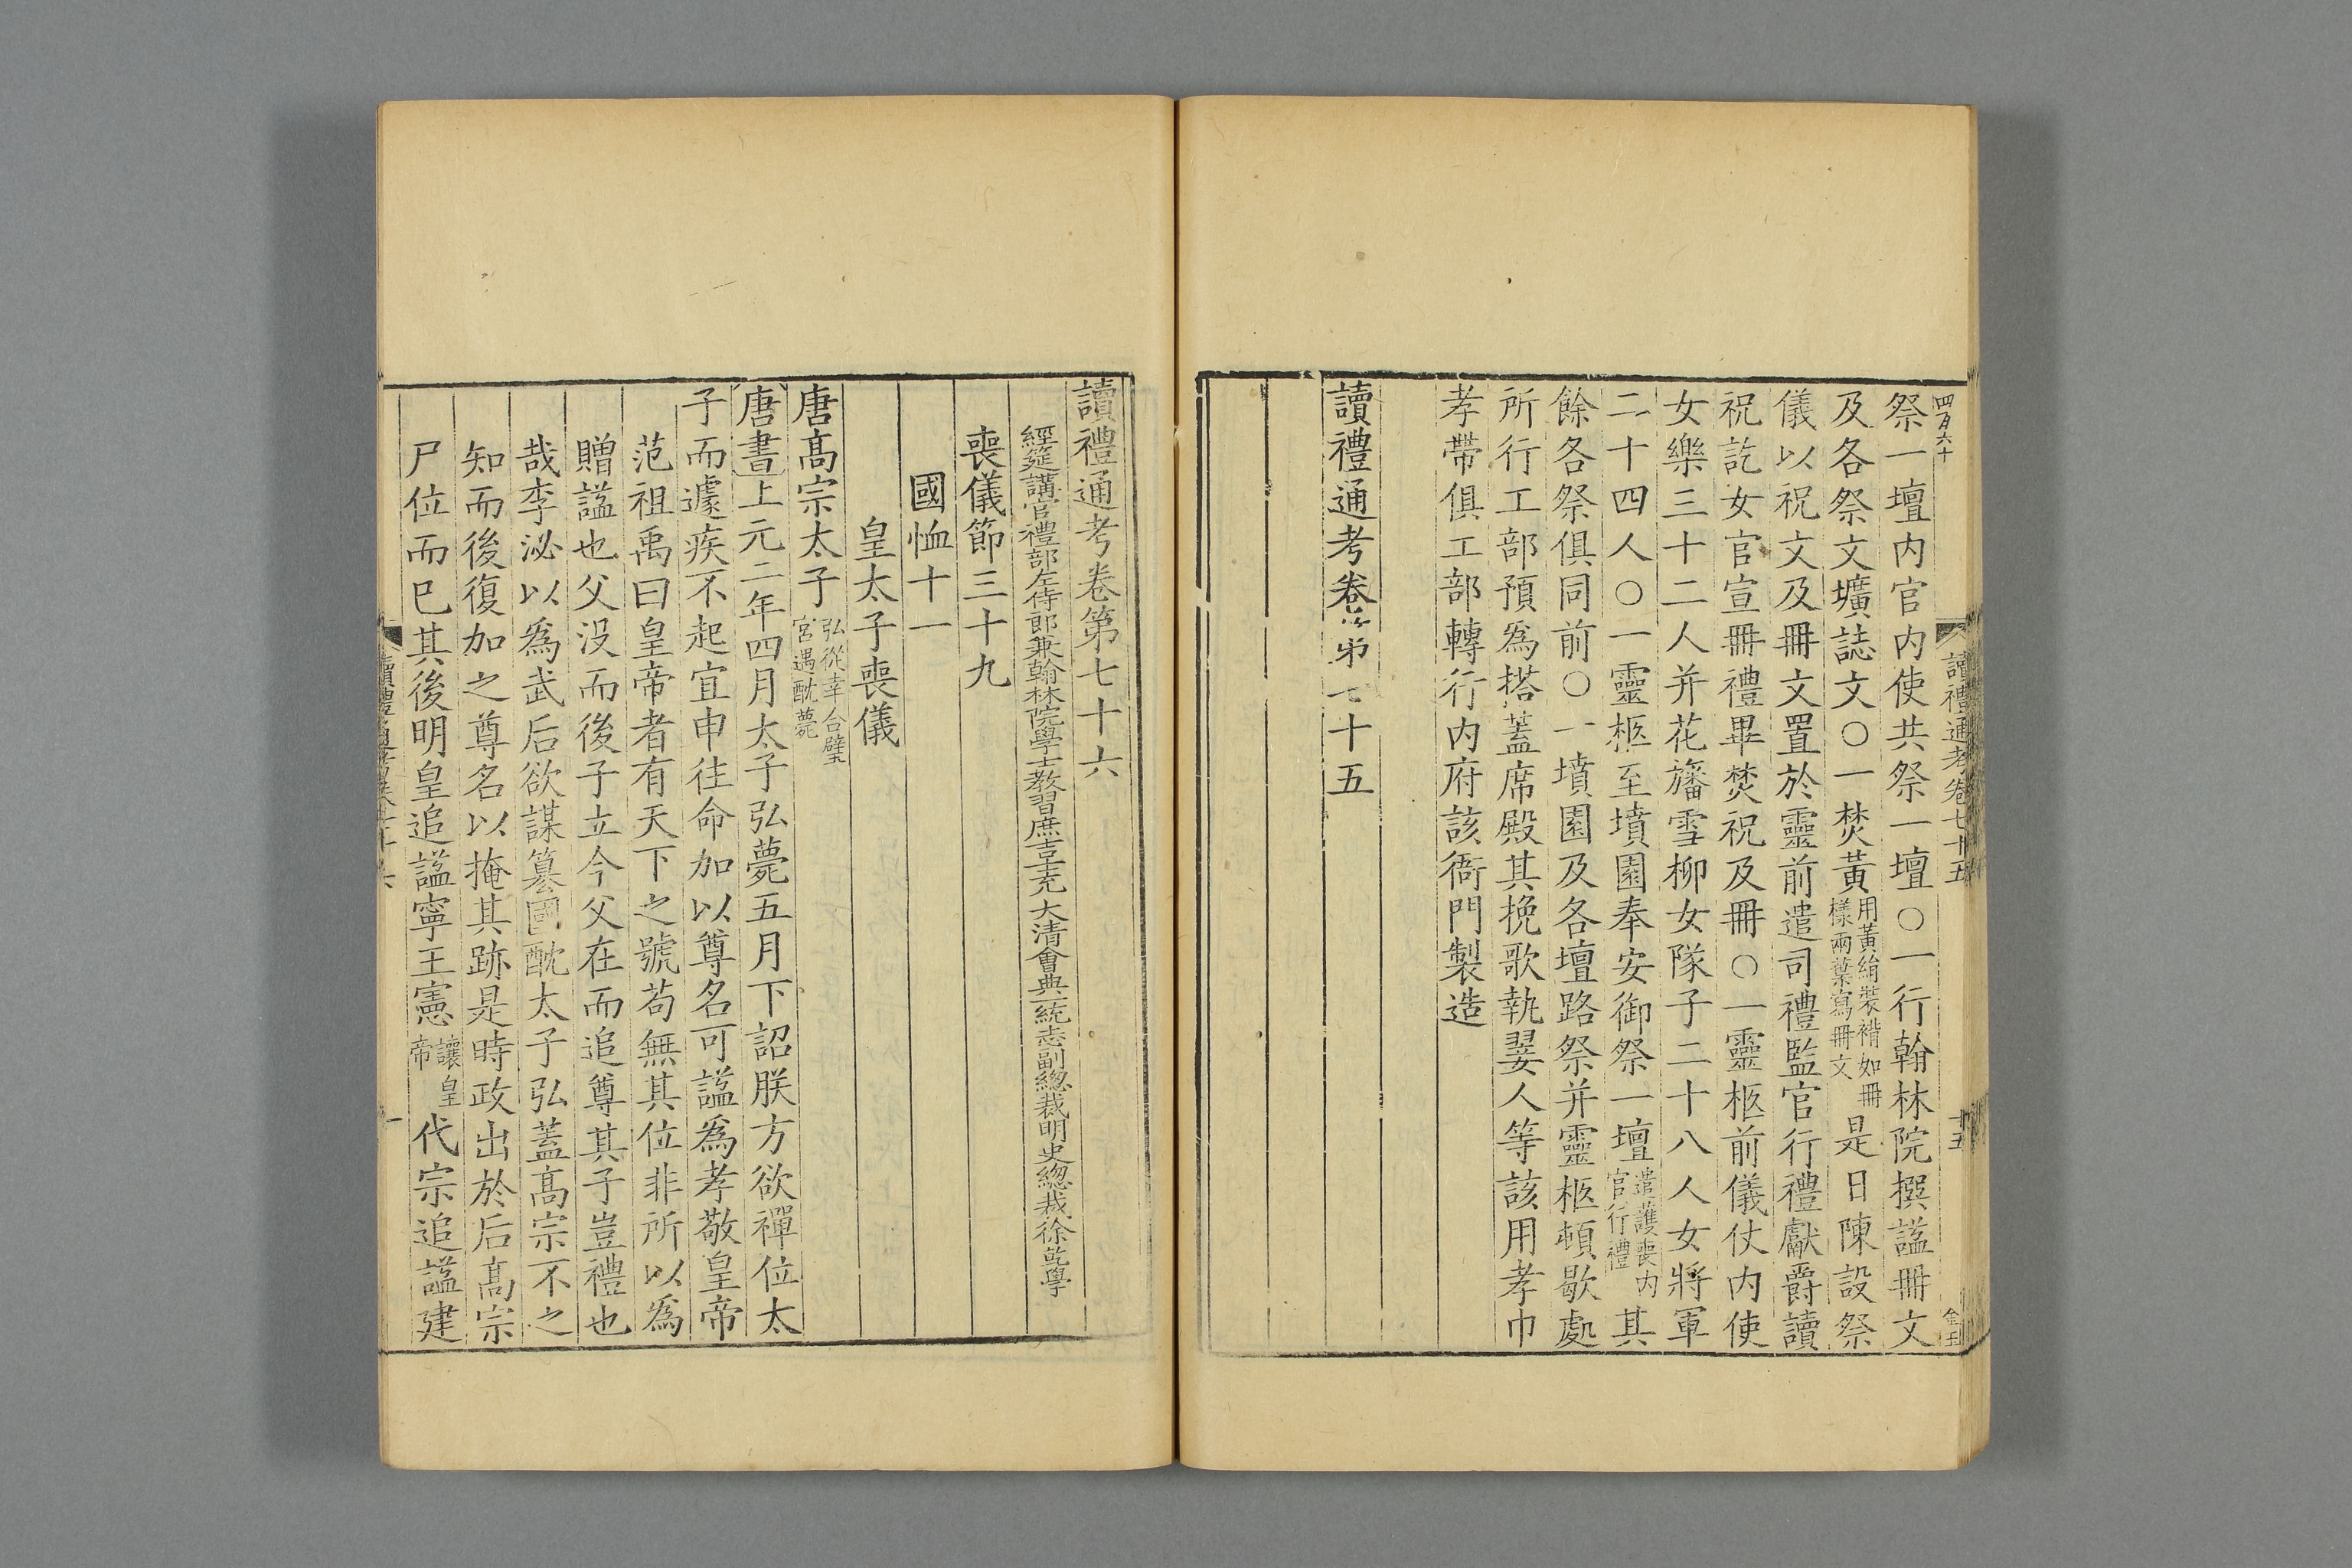 四百六十
讀禮通考卷七十五
十五
金玉
祭一壇内官内使共祭一壇○一行翰林院撰謚冊文
及各祭文壙誌文○一焚黃用黃絹裝褙如冊樣兩葉寫冊文是日陳設祭
儀以祝文及冊文置於靈前遣司禮監官行禮獻爵讀
祝訖女官宣冊禮畢焚祝及冊○一靈柩前儀仗内使
女樂三十二人并花旛雪柳女隊子二十八人女將軍
二十四人○一靈柩至墳園奉安御祭一壇遣護喪内官行禮其
餘各祭俱同前○一墳園及各壇路祭并靈柩頓歇處
所行工部預爲搭蓋席殿其挽歌執翣人等該用孝巾
孝帶俱工部轉行内府該衙門製造
讀禮通考卷第七十五
讀禮通考卷第七十六
經筵講官禮部左侍郎兼翰林院學士教習庶吉士充大清會典一統志副總裁明史總裁徐乾學
喪儀節三十九
國恤十一
皇太子喪儀
唐高宗太子弘從幸合璧宮遇酖薨
唐書上元二年四月太子弘薨五月下詔朕方欲禪位太
子而遽疾不起宜申往命加以尊名可謚爲孝敬皇帝
范祖禹曰皇帝者有天下之號苟無其位非所以爲
贈謚也父没而後子立今父在而追尊其子豈禮也
哉李泌以爲武后欲謀篡國酖太子弘蓋高宗不之
知而後復加之尊名以掩其跡是時政出於后高宗
尸位而已其後明皇追謚寧王憲讓皇帝代宗追謚建
讀禮通考卷七十六
一